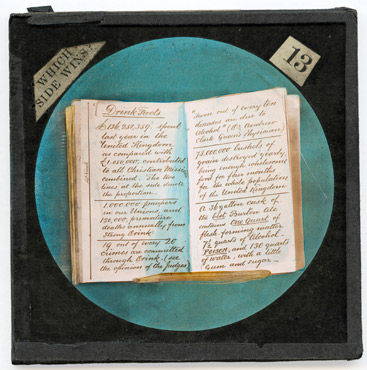 WHICH
SIDE WINS?
13
Drink Facts
£136,258,359, spent
last year in the
United Kingdom
as compared with
£1,050,000, contributed
to all Christian Missions
combined. The two
lines at the side shows
the proportion.
1,000,000 paupers
in our Unions, and
120,000, premature
deaths annually, from
Strong Drink.
19 out of every 20
crimes are committed
through Drink. (see
the opinion of the Judges
"Seven out of every ten
diseases are due to
Alcohol." (Dr Andrew
Clark Queen's Physician)
75,000,000 bushels of
grain destroyed yearly,
being enough wholesome
food for four months
for the whole population
of the United Kingdom.
A 36 gallon cask of
the best Burton Ale
contains One Quart of
flesh-forming matter
7½ quarts of Alcohol -
Poison, and 130 quarts
of water, with a little
Gum and sugar -